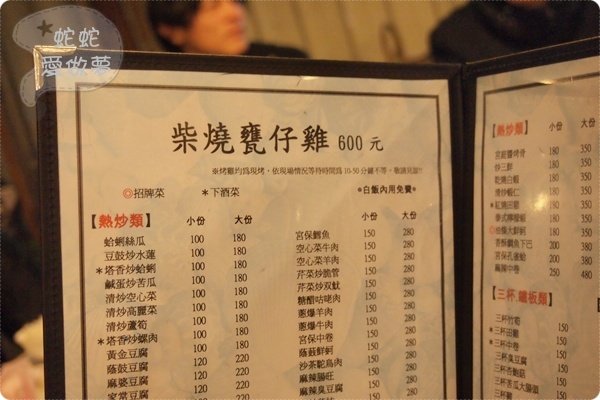 蛇蛇
愛做夢
柴燒甕仔雞 600 元
※烤雞均為現烤,依現場情況等待時間為10-50分鐘不等,敬請見諒!!
◎招牌菜 *下酒菜 *白飯內用免費*
【熱炒類】 小份 大份 小份 大份
蛤蜊絲瓜 100 180 宮保鱈魚 150 280
豆鼓炒水蓮 100 180 空心菜牛肉 150 280
*塔香炒蛤蜊 100 180 空心菜羊肉 150 280
鹹蛋炒苦瓜 100 180 芹菜炒脆管 150 280
清炒空心菜 100 180 芹菜炒双魷 150 280
清炒高麗菜 100 180 糖醋咕咾肉 150 280
清炒蘆筍 100 180 蔥爆羊肉 150 280
*塔香炒螺肉 100 180 蔥爆牛肉 150 280
黃金豆腐 120 220 宮保中卷 150 280
蔭鼓豆腐 120 220 蔭菽鮮蚵 150 280
麻婆豆腐 120 220 沙茶鴕鳥肉 150 280
家常豆腐 120 220 麻辣腸旺 150 280
麻辣臭豆腐 150 280
【熱炒類】 小份 大份
宮庭醬烤骨 180 350
炒三鮮 180 350
乾燒白蝦 180 350
滑炒蝦仁 180 350
*紅燒田雞 180 350
泰式檸檬蝦 180 350
◎由燒大鮮蚵 180 350
香酥鯛魚下巴 200 380
宮保孔雀蛤 200 380
麻辣中卷 250 480
【三杯.鐵板類】 小份
三杯竹筍 150
*三杯田雞 150
*三杯中卷 150
三杯臭豆腐 150
三杯杏鮑菇 150
三杯苦瓜大腸頭 150
三杯雞 150